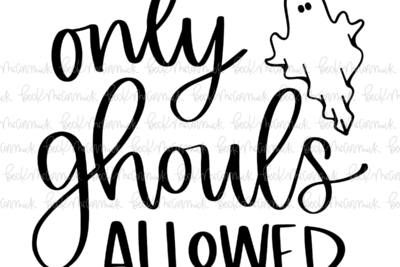 only
ghouls
ALLOWED